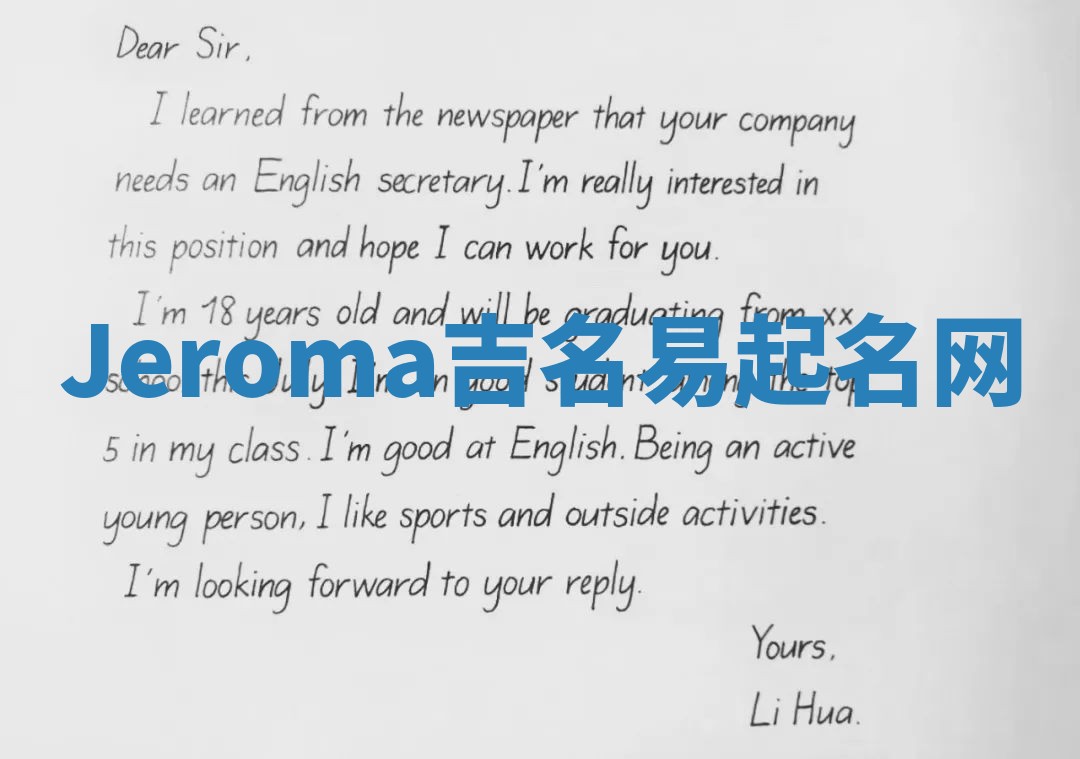 Dear Sir,
I learned from the newspaper that your company
needs an English secretary. I'm really interested in
this position and hope I can work for you.
I'm 18 years old and will be graduating from xx
Jeroma吉名易起名网
school this July. I'm good student among the top
5 in my class. I'm good at English. Being an active
young person, I like sports and outside activities.
I'm looking forward to your reply.
Yours,
Li Hua.